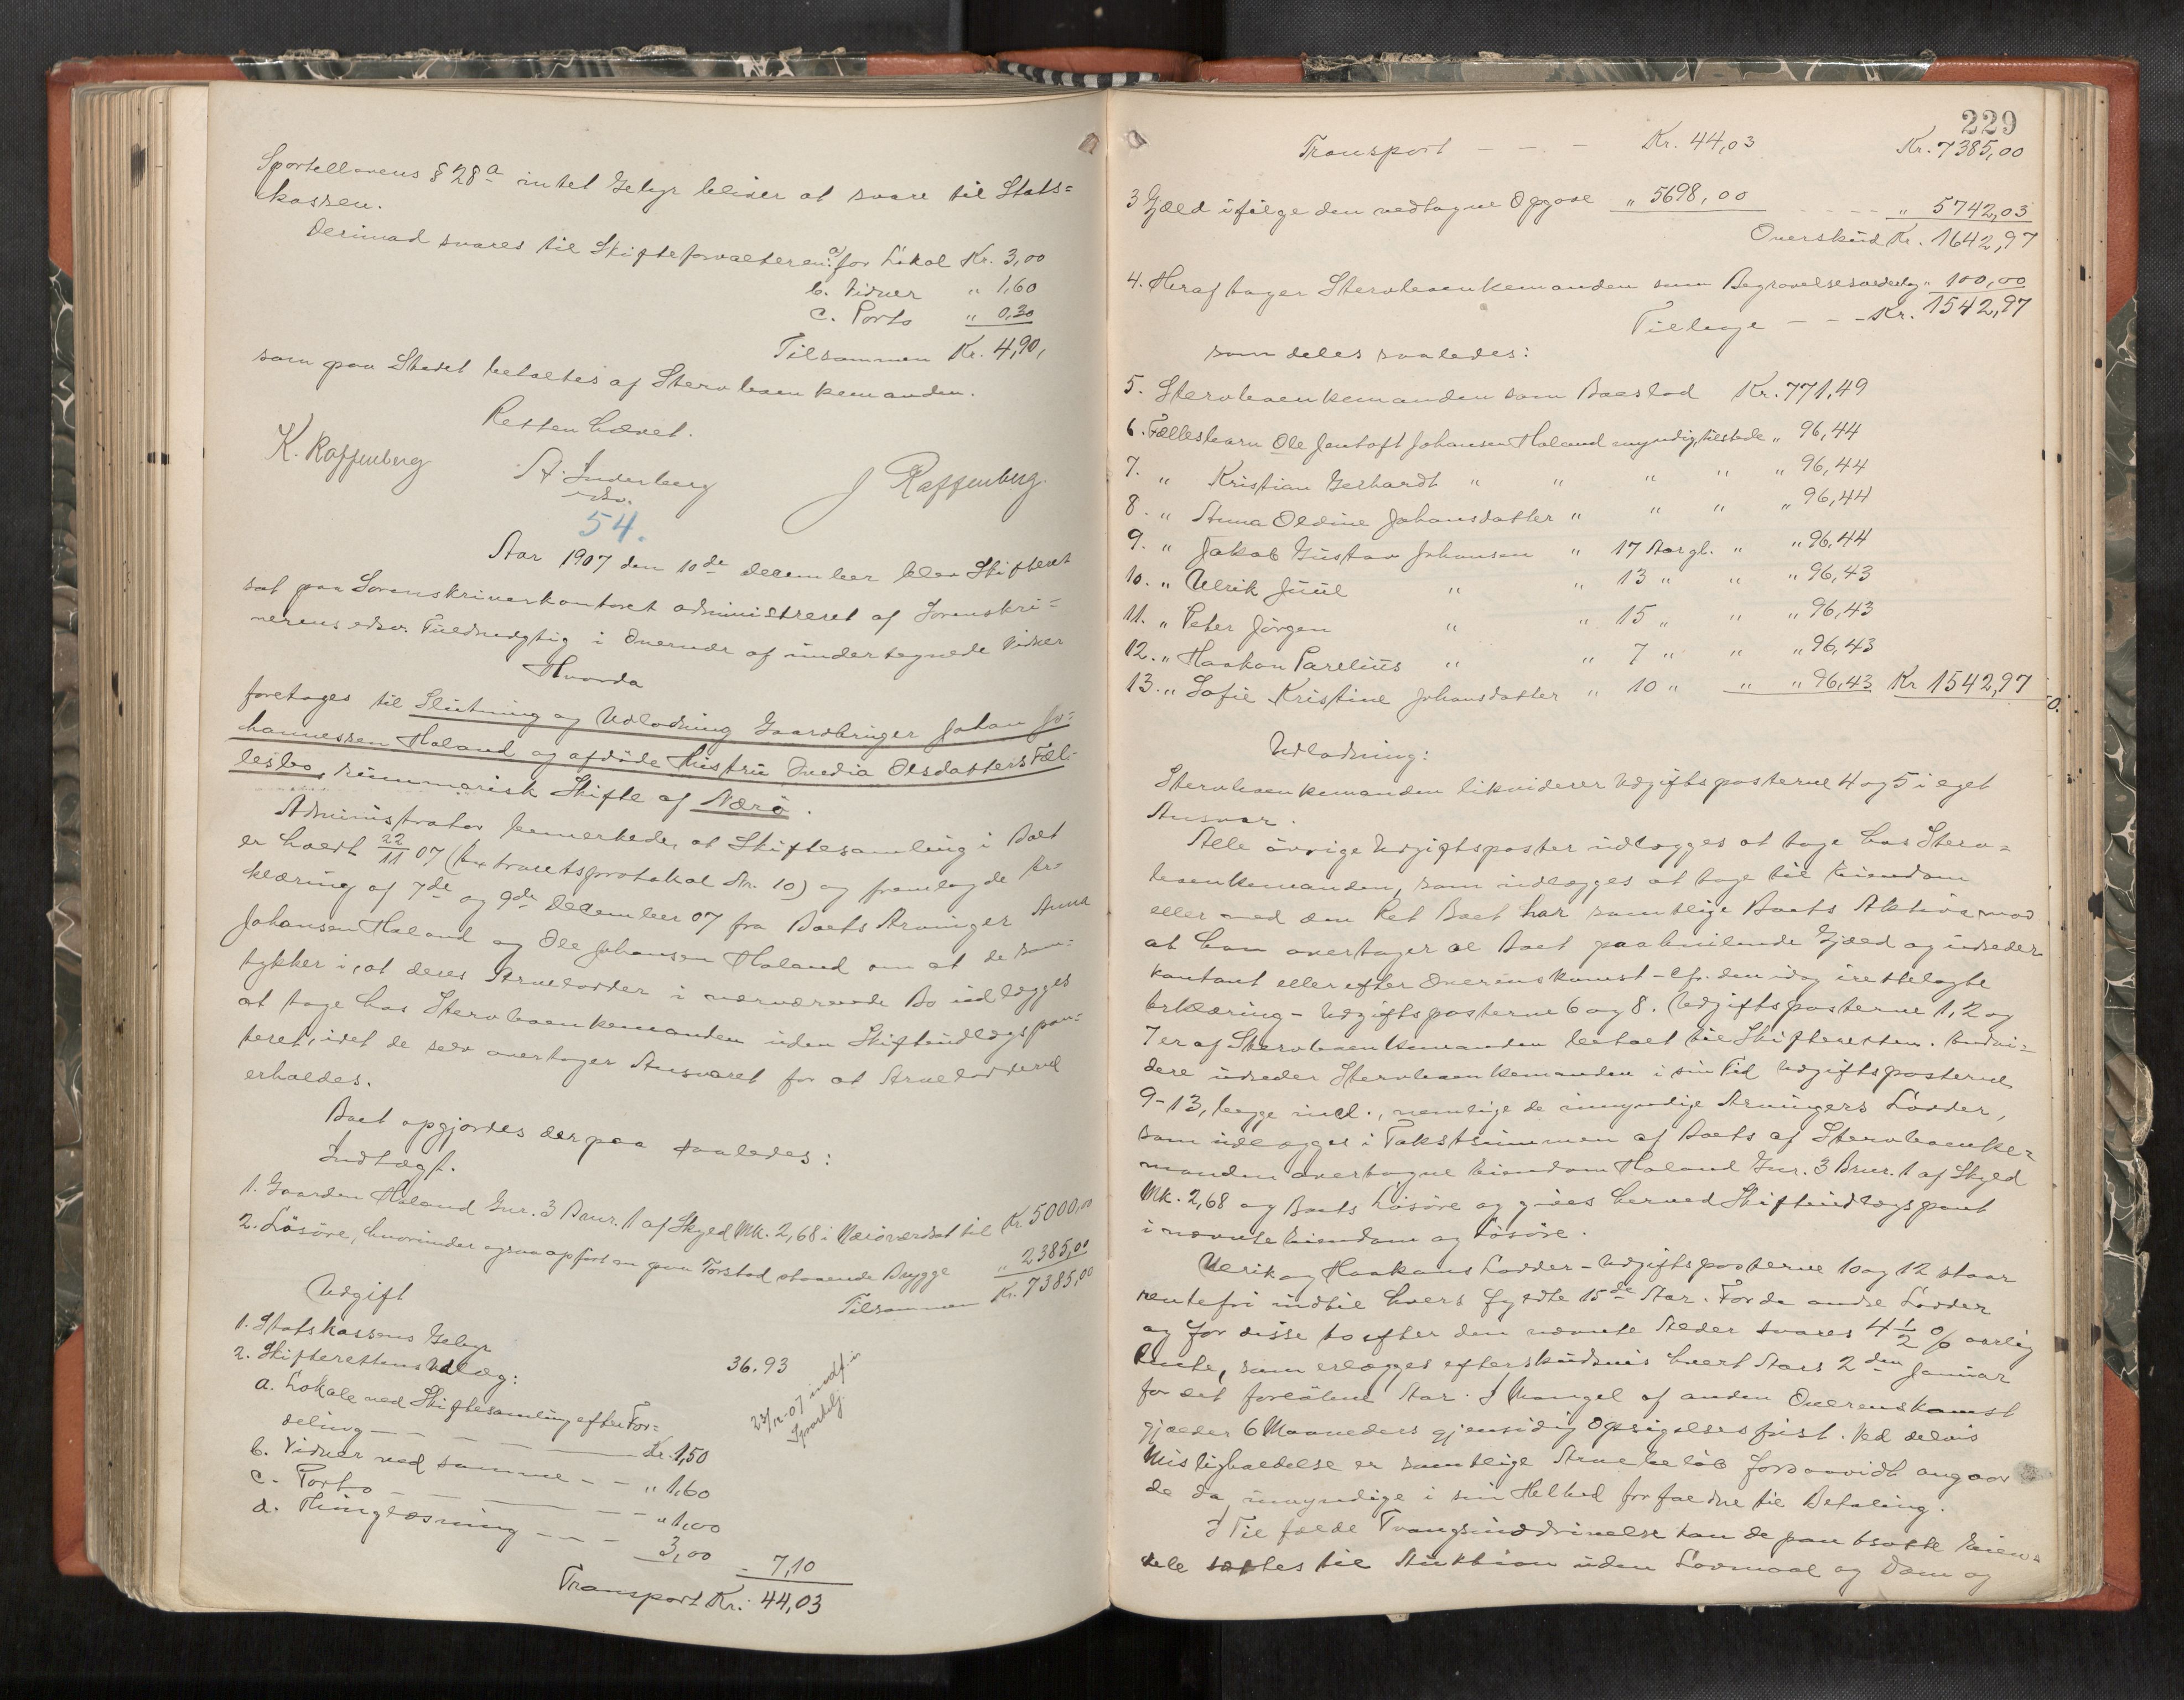 Sportellovens § 28a intet Gebyr bliver at svare til Stats=
kassen.
Derimod svares til Skifteforvalteren: a/ for Lokal Kr. 3,00
b. Vidner " 1,60
c. Porto " 0,30
Tilsammen Kr. 4,90,
som paa Stedet betaltes af Stervboenkemanden.
Retten hævet.
K. Raffenberg A. Inderberg J Raffenberg.
54.
Aar 1907 den 10de december blev Skifteret
sat paa Sorenskriverkontoret administreret af Sorenskri=
verens edsv. Fuldmægtig i Overvær af undertegnede Vidner
Hvorda
foretoges til Slutning og Udlodning Gaardbruger Johan Jo=
hannessen Haland og afdöde Hustru Ovedia Olsdatters Fæl=
lesbo, summarisk Skifte af Nærö.
Administrator bemerkede, at Skiftesamling i Boet
er holdt 22/11 07 (Extraretsprotokol Nr. 10) og fremlagde Er=
klæring af 7de og 9de December 07 fra Boets Arvinger Anna
Johansen Haland og Ole Johansen Haland om at de sam=
tykker i, at deres Arvelodder i nærværende Bo udlægges
at tage hos Stervboenkemanden uden Skifteudlægspan=
teret, idet de selv overtager Ansvaret for at Arvelodderne
erholdes.
Boet opgjordes derpaa saaledes:
Indtægt.
1. Gaarden Haland Gnr. 3 Bnr. 1 af Skyld Mk. 2,68 i Nærö værdsat til Kr. 5000,00
2. Lösöre, hvorunder ogsaa opfört en paa Torstad staaende Brygge " 2385,00
Tilsammen Kr. 7385,00
Udgift
1. Statskassens Gebyr 36.93
2. Skifterettens Udlæg:
a. Lokale ved Skiftesamling efter For=
deling — — — Kr. 1,50
b. Vidner ved samme - - " 1,60
c. Porto — — — " 1,00
d. Thinglæsning — — - 3,00 - 7,10
23/12-07 indf. i
Sportelj.
Transport Kr. 44,03
229
Transport - - - Kr. 44,03 Kr. 7385,00
3 Gjæld ifölge den vedtagne Opgave " 5698,00 - - - " 5742,03
Overskud Kr. 1642,97
4. Heraf tager Stervboenkemanden som Begravelsesvederlag " 100,00
Tilbage - - - Kr. 1542,97
som deles saaledes:
5. Stervboenkemanden som Boeslod Kr. 771,49
6. Fællesbarn Ole Jentoft Johansen Haland myndig tilstede " 96,44
7. " Kristian Gerhardt " " " " " 96,44
8. " Anna Oldine Johansdatter " " " " 96,44
9. " Jakob Gustav Johansen " 17 Aar gl. " " 96,44
10. " Ulrik Juul " " 13 " " " 96,43
11. " Peter Jörgen " " 15 " " " 96,43
12. " Haakon Parelius " " 7 " " " 96,43
13. " Sofie Kristine Johansdatter " 10 " " " 96,43 Kr 1542,97
Udlodning:
Stervboenkemanden likviderer Udgiftsposterne 4 og 5 i eget
Ansvar.
Alle övrige Udgiftsposter udlægges at tage hos Sterv=
boenkemanden, som udlægges at tage til Eiendom
eller med den Ret Boet har samtlige Boets Aktiva mod
at han overtager al Boet paahvilende Gjæld og udreder
kontant eller efter Overenskomst - cfr. den idag irettelagte
Erklæring - Udgiftsposterne 6 og 8. Udgiftsposterne 1, 2 og
7 er af Stervboenkemanden betalt til Skifteretten. Endvi=
dere udreder Stervboenkemanden i sin Tid Udgiftsposterne
9-13, begge incl., nemlige de umyndige Arvingers Lodder,
som udlægges i Takstsummen af Boets af Stervboenke=
manden overtagne Eiendom Haland Gnr. 3 Bnr. 1 af Skyld
Mk. 2,68 og Boets Lösöre og gives herved Skifteudlægspant
i nævnte Eiendom og Lösöre.
Ulrik og Haakons Lodder - Udgiftsposterne 10 og 12 staar
rentefri indtil hvers fyldte 15de Aar. For de andre Lodder
og for disse to efter den nævnte Alder svares 4 1/2 % aarlig
Rente, som erlægges efterskudsvis hvert Aars 2den Januar
for det forlöbne Aar. I Mangel af anden Overenskomst
gjælder 6 Maaneders gjensidig Opsigelsesfrist. Ved delvis
Misligholdelse er samtlige Arvebelöb forsaavidt angaar
de da umyndige i sin Helhed forfaldne til Betaling.
I Tilfælde Tvangsinddrivelse kan de pantsatte Eien=
dele sættes til Auktion uden Lovmaal og Dom og